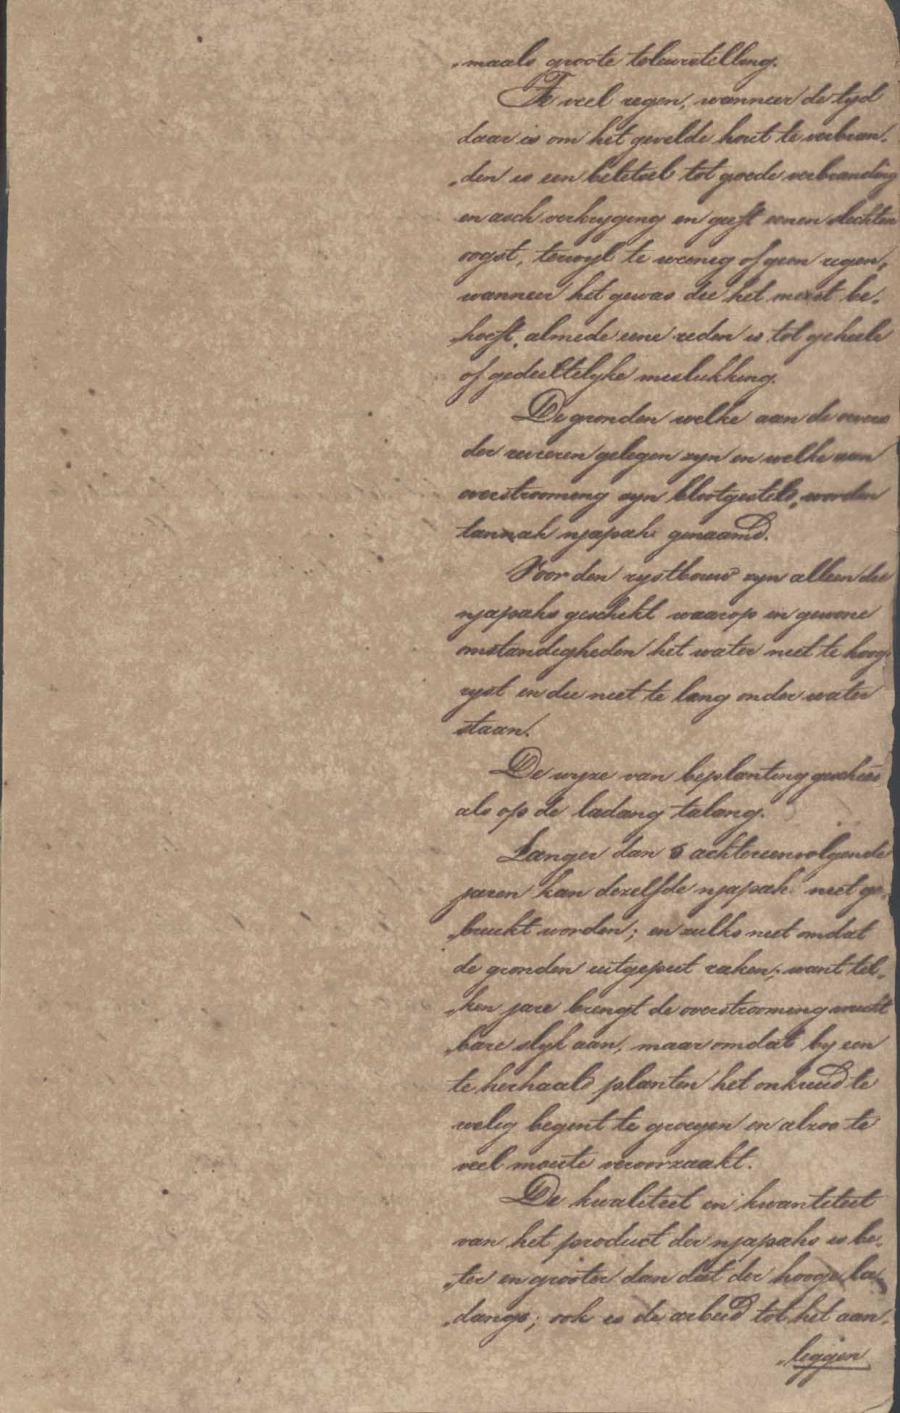 „maals groote teleurstelling.
Te veel regen, wanneer de tyd
daar is om het gevelde hout te verbran„
„den is een beletsel tot goede verbranding
en asch verkryging en geeft eenen slechten
oogst, terwyl te weinig of geen regen,
wanneer het gewas die het meest be„
„hoeft, almede eene reden is tot geheele
of gedeeltelyke mislukking.
De gronden welke aan de oevers
der rivieren gelegen zyn en welke aan
overstrooming zyn blootgesteld, worden
tannah njapah genaamd.
Voor den rystbouw zyn alleen die
njapahs geschikt waarop in gewone
omstandigheden het water niet te hoog
ryst en die niet te lang onder water
staan.
De wyze van beplanting geschied
als op de ladang talang.
Langer dan 5 achtereenvolgende
jaren kan dezelfde njapah niet ge„
„bruikt worden; en zulks niet omdat
de gronden uitgeput raken, want tel„
„ken jare brengt de overstrooming vrucht
„bare slyk aan, maar omdat by een
te herhaald planten het onkruid te
welig begint te groeyen en alzoo te
veel moeite veroorzaakt.
De kwaliteit en kwantiteit
van het product der njapahs is be„
„ter en grooter dan dat der hooge la„
„dangs; ook is de arbeid tot het aan„
„leggen